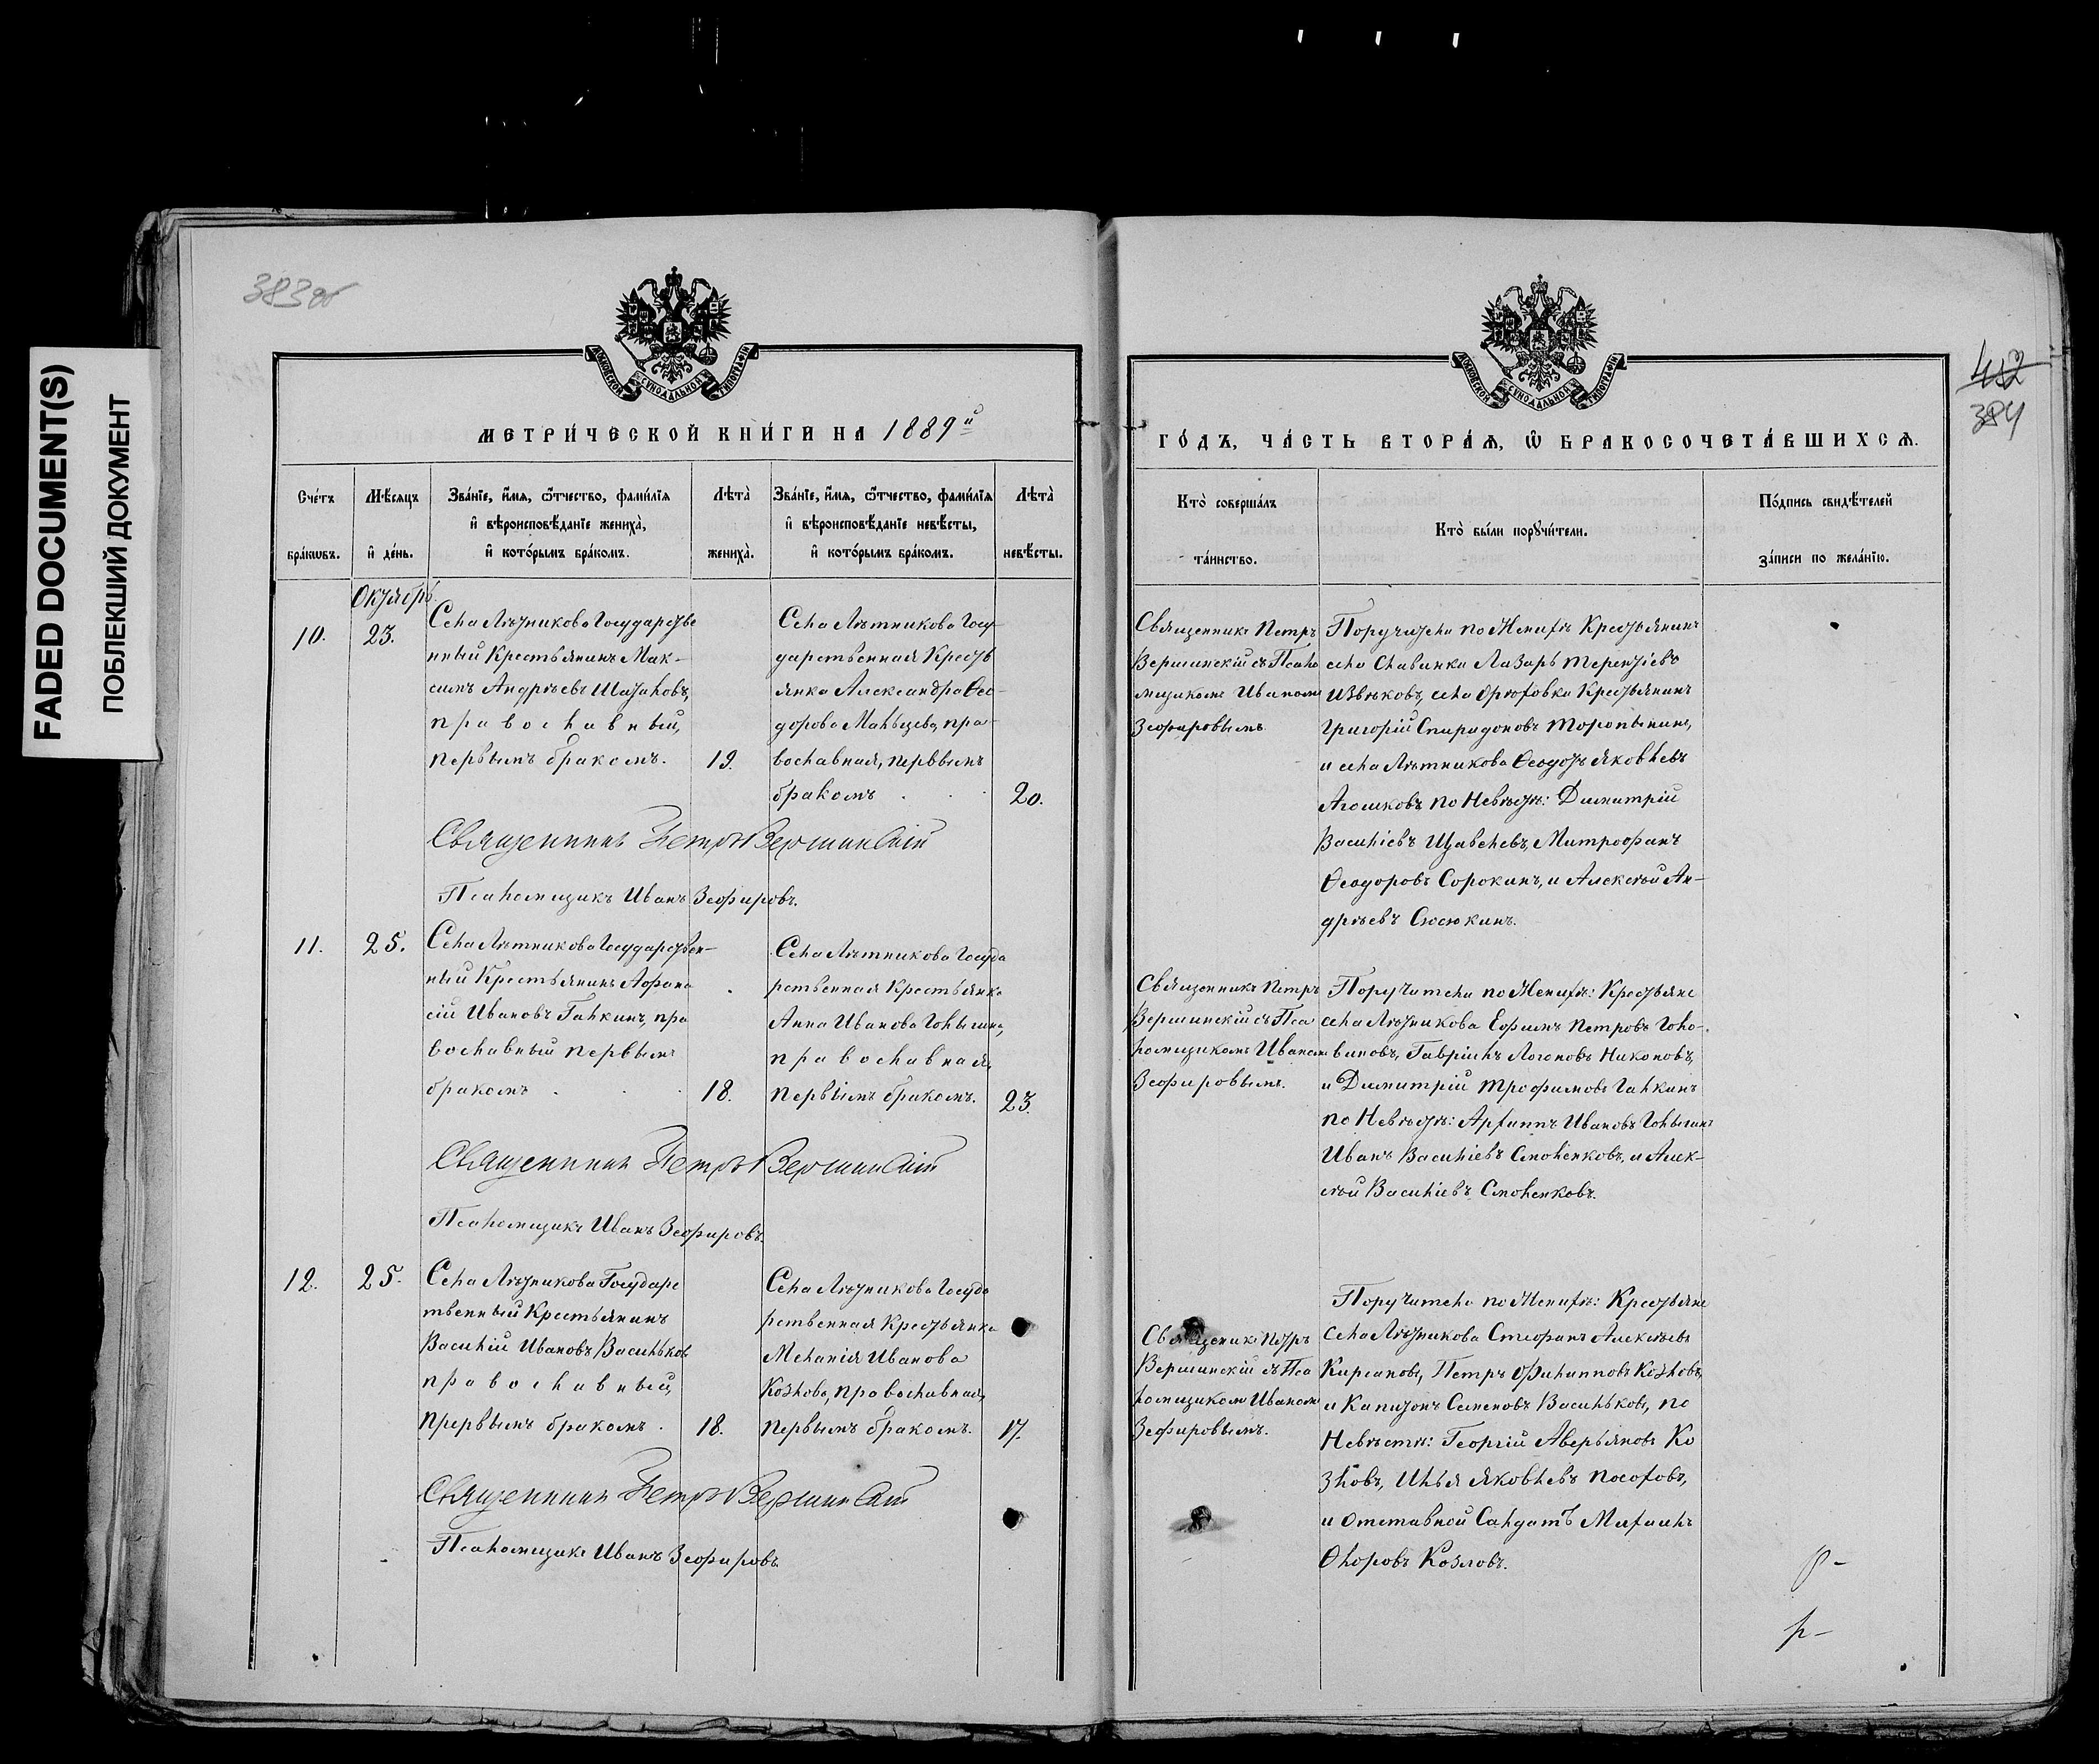 FADED DOCUMENT(S)
ПОБЛЕКШИЙ ДОКУМЕНТ
383 об
МОСКОВСКОЙ СѴНОДАЛЬНОЙ ТИПОГРАФІИ
МЕТРИ́ЧЕСКОЙ КНИ́ГИ НА 1889й
Сче́тъ бра́кѡвъ.
Мѣ́сяцъ и҆ де́нь.
Зва́нїе, и҆́мѧ, ѻ҆́тчество, фамилїя
и҆ вѣроисповѣ́данїе жениха̀,
и҆ кото́рымъ бра́комъ.
Лѣ́та жениха̀.
Зва́нїе, и҆́мѧ, ѻ҆́тчество, фамилїя
и҆ вѣроисповѣ́данїе невѣ́сты,
и҆ кото́рымъ бра́комъ.
Лѣ́та невѣ́сты.
Октябрь
10.
23.
Села Лѣтникова Государстве
нный Крестьянинъ Мак-
симъ Андреевъ Шаталовъ,
православный,
первымъ бракомъ.
19.
Села Лѣтникова Госу
дарственная Кресть
янка Александра Ѳео-
дорова Мальцева, пра-
вославная, первымъ
бракомъ
20.
Священникъ Петръ Вершинскій
Псаломщикъ Иванъ Зефировъ.
11.
25.
Села Лѣтникова Государствен-
ный Крестьянинъ Афана
сій Ивановъ Галкинъ, пра
вославный первымъ
бракомъ
18.
Села Лѣтникова Госуда
рственная Крестьянка
Анна Иванова Голышина,
православная,
первымъ бракомъ.
23.
Священникъ Петръ Вершинскій
Псаломщикъ Иванъ Зефировъ.
12.
25.
Села Лѣтникова Государс
твенный Крестьянинъ
Василій Ивановъ Васильков
православный,
прервымъ бракомъ.
18.
Села Лѣтникова Госуда
рственная Крестьянка
Меланія Иванова
Козлова, православная,
первымъ бракомъ.
17.
Священникъ Петръ Вершинскій
Псаломщикъ Иванъ Зефировъ.
МОСКОВСКОЙ СѴНОДАЛЬНОЙ ТИПОГРАФІИ
412
384
ГО́ДЪ, ЧА́СТЬ ВТОРА́Ѧ, Ѽ БРАКОСОЧЕТА́ВШИХСѦ.
Кто̀ соверша́лъ та́инство.
Кто̀ бы́ли порꙋчи́тели.
По́дпись свидѣ́телей за́писи по жела́нїю.
Священникъ Петръ
Вершинскій съ Псало
мщикомъ Иваномъ
Зефировымъ
Поручители по Женихѣ Крестьянинъ
села Славинки Лазарь Терентіевъ
Извѣковъ, села Орѣховки Крестьянинъ
Григорій Спиридоновъ Торопынинъ,
и села Лѣтникова Ѳеодотъ Яковлевъ
Агошковъ по Невѣстѣ: Димитрій
Василіевъ Щавелевъ, Митрофанъ
Ѳеодоровъ Сорокинъ, и Алексѣй Ан-
дреевъ Сюсюкинъ.
Священникъ Петръ
Вершинскій съ Пса
ломщикомъ Иваномъ
Зефировымъ.
Поручители по Женихѣ: Крестьяне
села Лѣтникова Ефимъ Петровъ Голо-
виновъ, Гавріилъ Логоновъ Никоновъ,
и Димитрій Трофимовъ Галкинъ
по Невѣстѣ: Архиппъ Ивановъ Голышинъ
Иванъ Василіевъ Смоленковъ, и Алек-
сѣй Василіевъ Смоленковъ.
Священикъ Петръ
Вершинскій съ Пса
ломщиком Иваном
Зефировымъ.
Поручители по Женихѣ: Крестьяне
села Лѣтникова Стефанъ Алексѣевъ
Кирсановъ, Петръ Филипповъ Козловъ,
и Капитонъ Семеновъ Васильковъ, по
Невѣстѣ: Георгій Аверьяновъ Ко
зловъ, Илья Яковлевъ Посоховъ,
и Отставной Салдатъ Михаилъ
Флоровъ Козловъ.